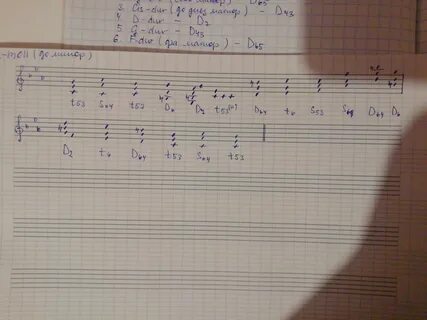 3. Cis-dur (до диез мажор) - D43
4. D-dur - D2
5. G-dur - D43
6. F-dur (фа мажор) - D65
c-moll (до минор)
t53 S64 t53 D6 D2 t53 D64 t6 S53 D64 D6
D2 t6 D64 t53 S64 t53